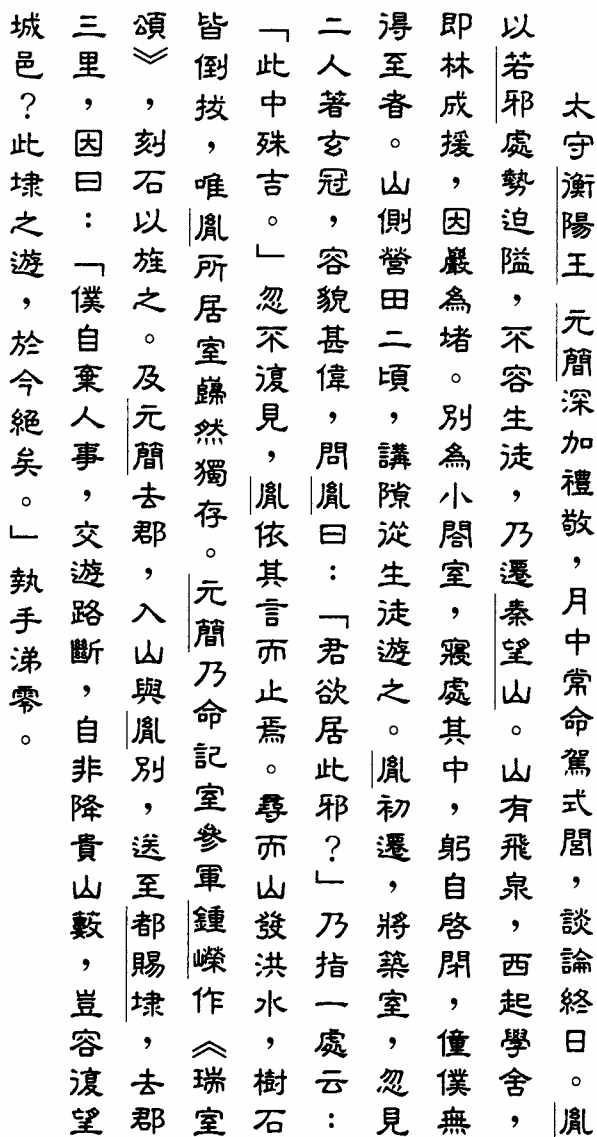 太守衡陽王元簡深加禮敬，月中常命駕式閭，談論終日。胤
以若邪處勢迫隘，不容生徒，乃遷秦望山。山有飛泉，西起學舍，
即林成援，因巖為堵。別為小閤室，寢處其中，躬自啓閉，僮僕無
得至者。山側營田二頃，講隙從生徒遊之。胤初遷，將築室，忽見
二人著玄冠，容貌甚偉，問胤曰：「君欲居此邪？」乃指一處云：
「此中殊吉。」忽不復見，胤依其言而止焉。尋而山發洪水，樹石
皆倒拔，唯胤所居室巋然獨存。元簡乃命記室參軍鍾嶸作《瑞室
頌》，刻石以旌之。及元簡去郡，入山與胤別，送至都賜埭，去郡
三里，因曰：「僕自棄人事，交遊路斷，自非降貴山藪，豈容復望
城邑？此埭之遊，於今絕矣。」執手涕零。